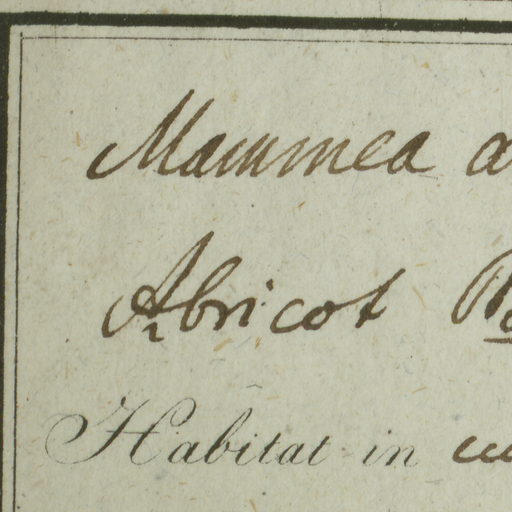 Mammea a
Abricot
Habitat in